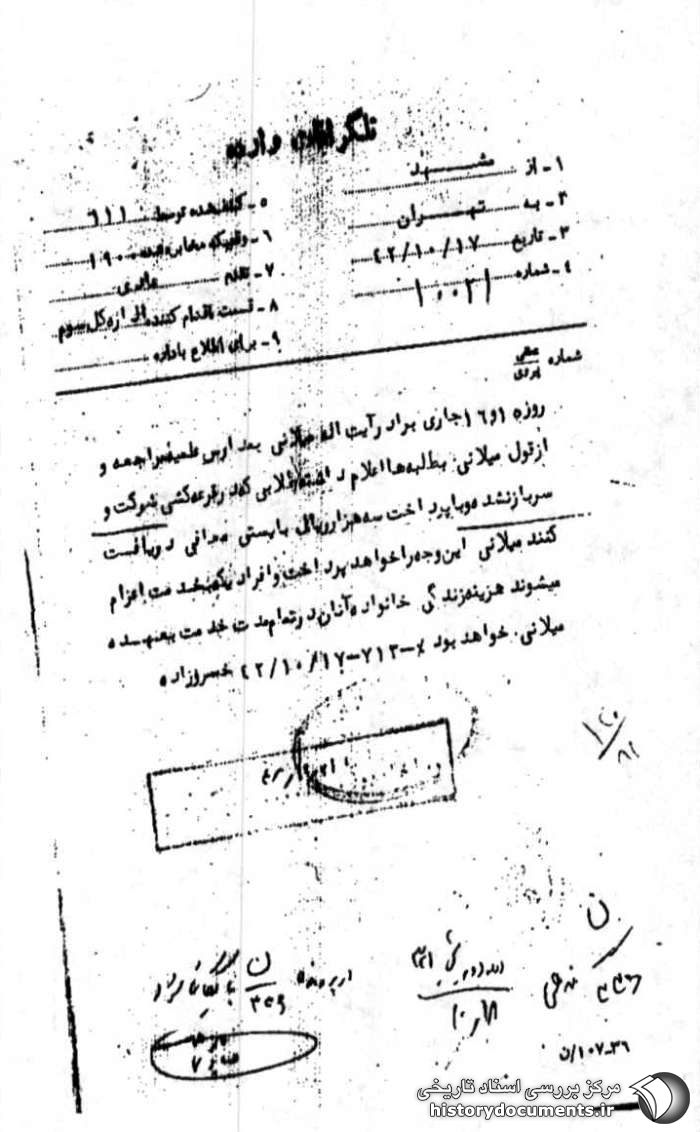 تلگرافات وارده
۱ـ از مشهد
۲ـ به تهران
۳ـ تاریخ ۴۲/۱۰/۱۷
۴ـ شماره ۱۰۰۲۱
۵ـ کشف شده توسط ۶۱۱
۶ـ وقتیکه مخابره شده ۱۹۰۰
۷ـ تقدم عادی
۸ـ قسمت اقدام کننده اداره کل سوم
۹ـ برای اطلاع باداره
شماره عطف / پیروی
روزه ۱و۱۶ جاری برادر آیت اله میلانی بمدارس علمیه مراجعه و
ازقول میلانی بطلبه‌ها اعلام داشته طلابی که در قرعه‌کشی شرکت و
سرباز نشده و با پرداخت سه هزار ریال بایستی معافی دریافت
کنند میلانی این وجه را خواهد پرداخت و افراد یکه بخدمت اعزام
میشوند هزینه زندگی خانواده آنان در تمام مدت خدمت بعهده
میلانی خواهد بود × ـ ۷۱۳ ـ ۴۲/۱۰/۱۷ خسروزاده
از پرونده
۱۰۷-۳۶/ن
مرکز بررسی اسناد تاریخی
historydocuments.ir